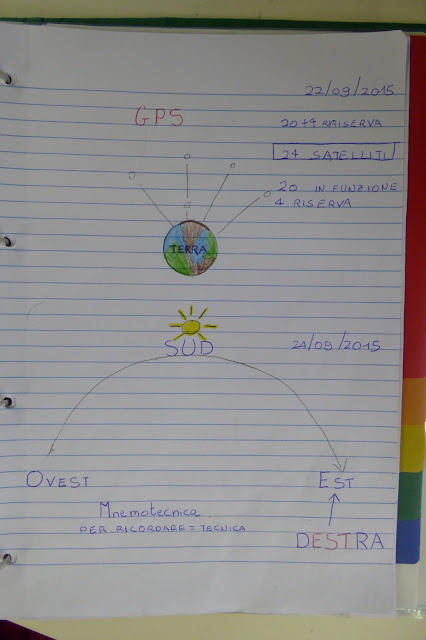 22/09/2015
GPS
20+4 RISERVA
24 SATELLITI
20 IN FUNZIONE
4 RISERVA
TERRA
24/09/2015
SUD
OVEST
EST
Mnemotecnica
PER RICORDARE = TECNICA
DESTRA